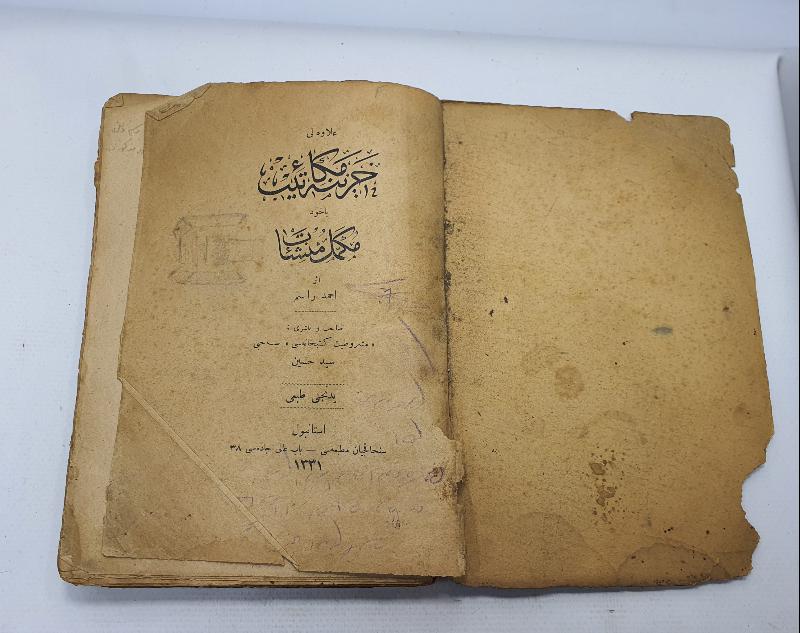 علاوه لی
خزینه مکاتیب
یاخود
مکمل منشئات
از
احمد راسم
صاحب و ناشری :
« مشروطیت کتبخانه‌سی » صاحبی
سید حسین
یدنجی طبعی
استانبول
سنجاقجیان مطبعه‌سی — باب عالی جاده‌سی ٣٨
١٣٣١